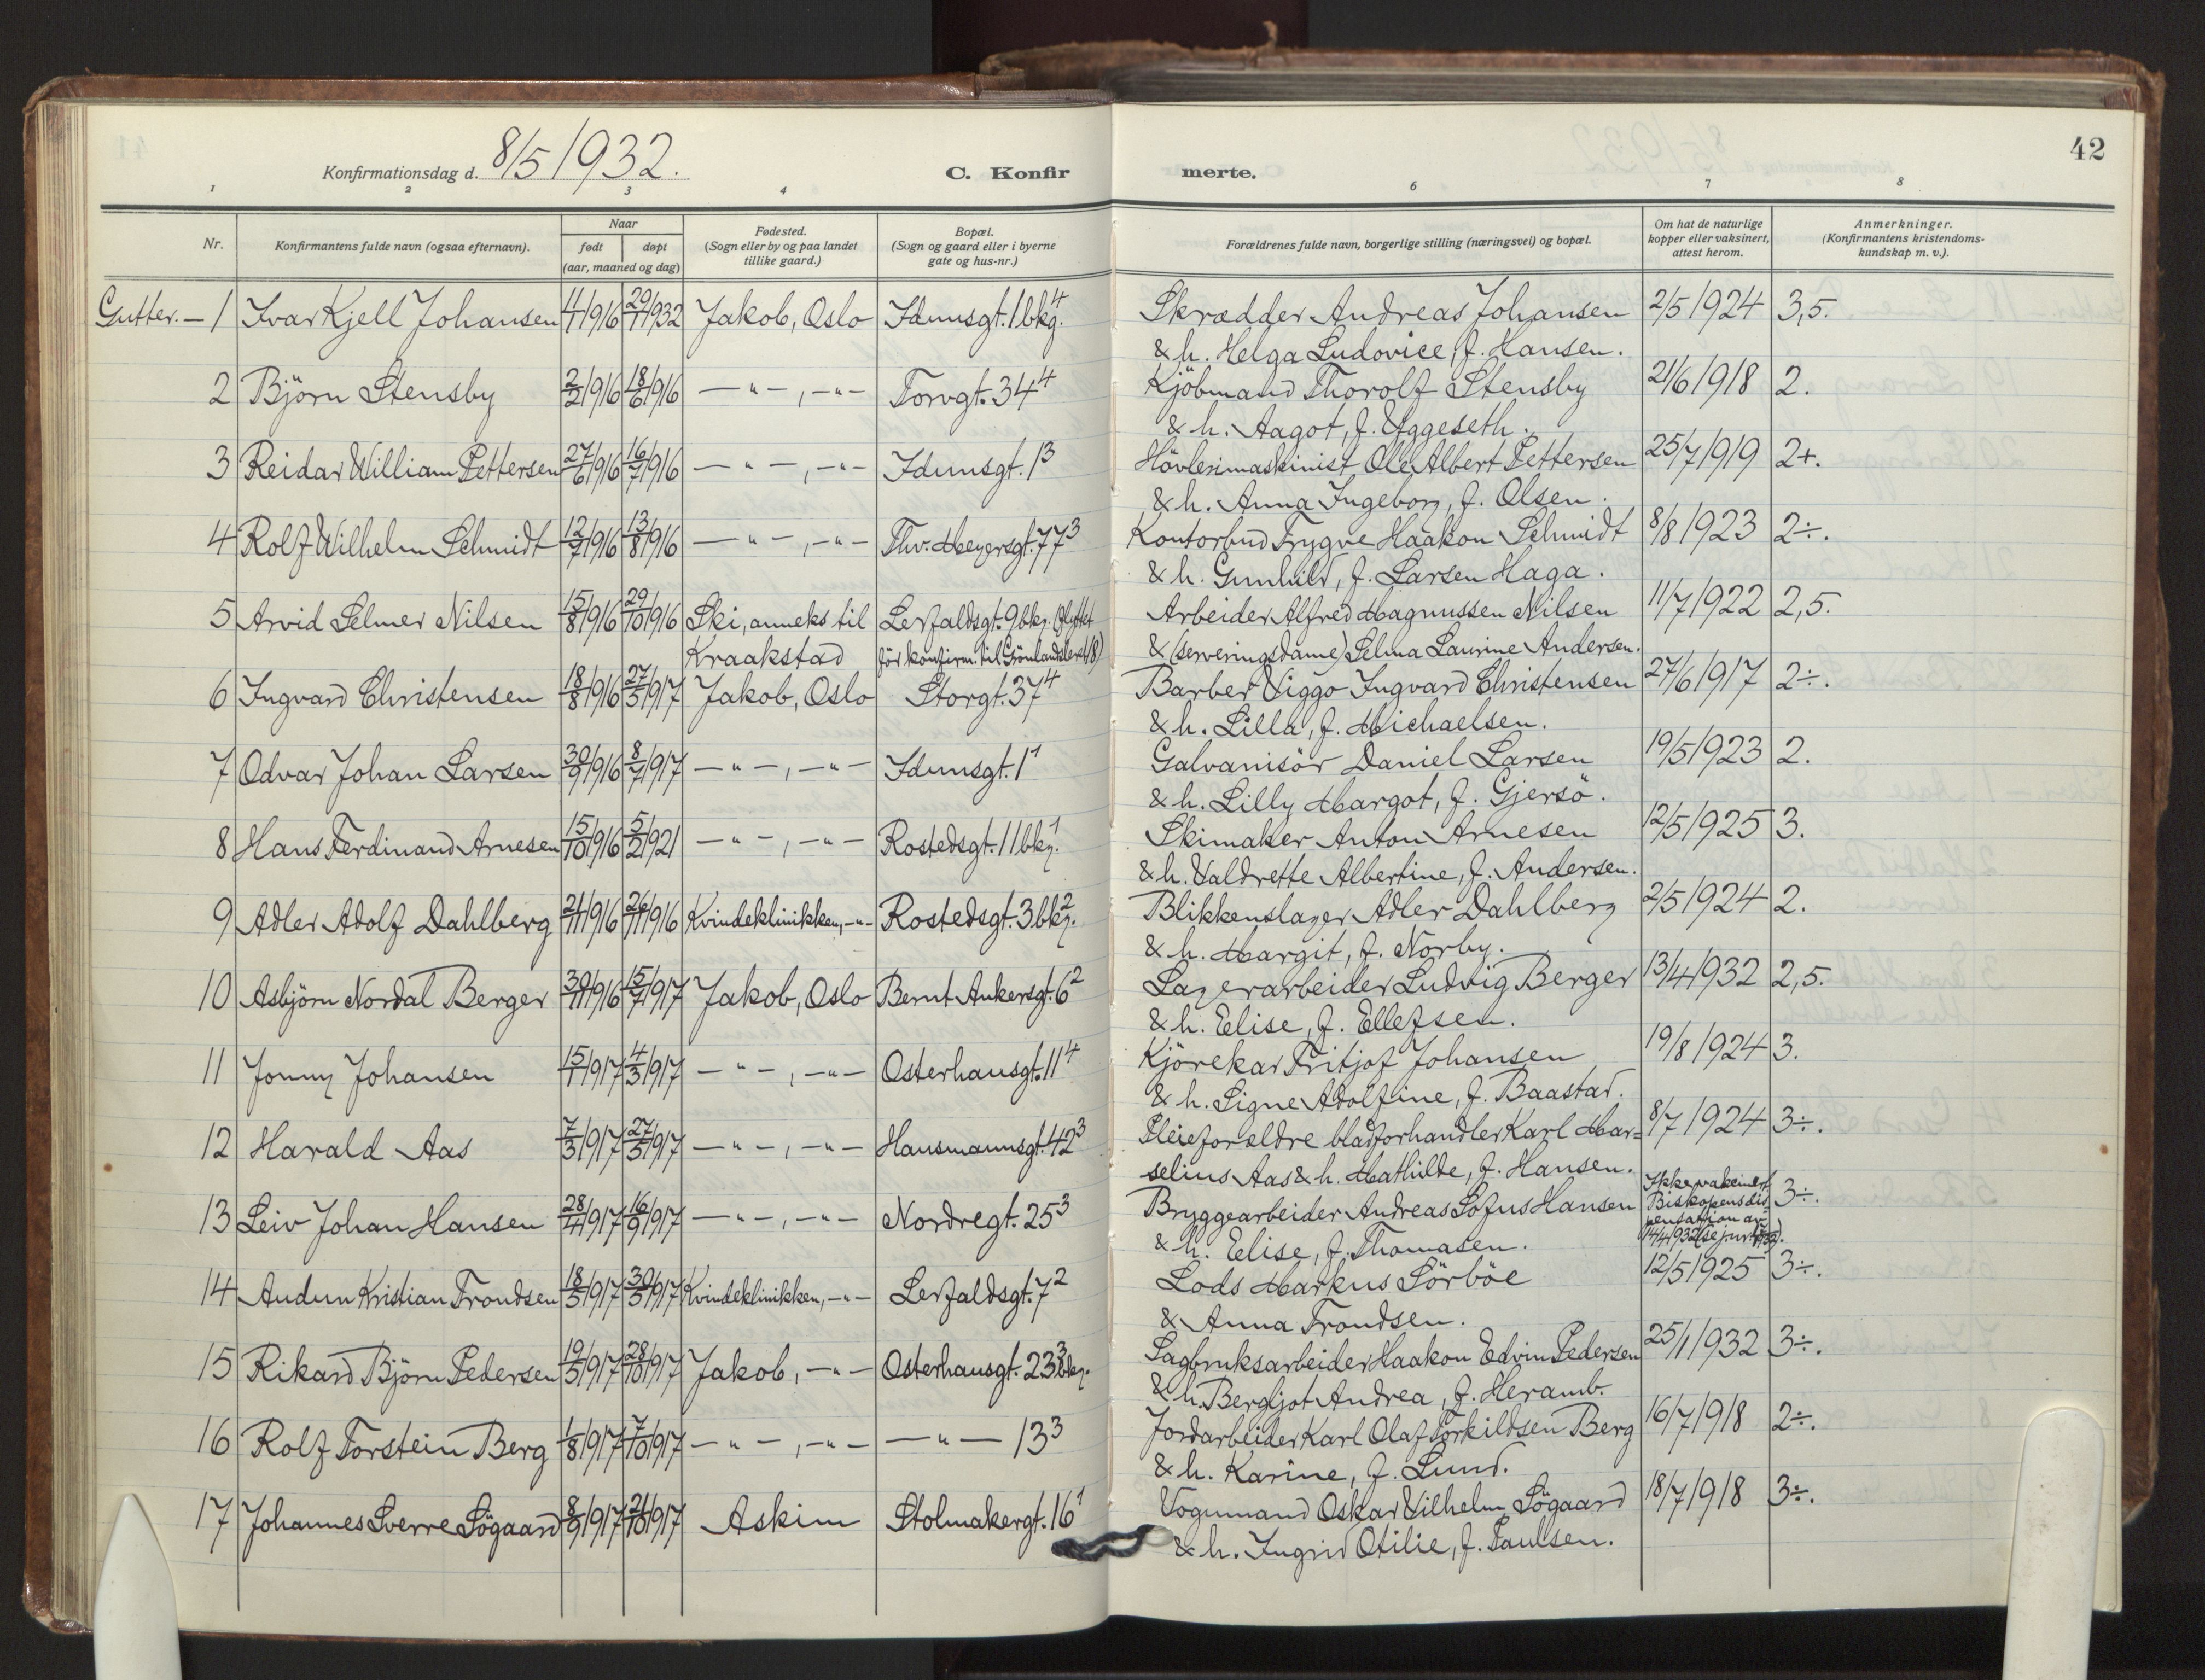 Konfirmationsdag d. 8/5 1932.
C. Konfir
merte.
42
1 2 3 4 6 7 8
Nr.
Konfirmantens fulde navn (ogsaa efternavn).
Naar
født døpt
(aar, maaned og dag)
Fødested.
(Sogn eller by og paa landet
tillike gaard.)
Bopæl.
(Sogn og gaard eller i byerne
gate og hus-nr.)
Forældrenes fulde navn, borgerlige stilling (næringsvei) og bopæl.
Om hat de naturlige
kopper eller vaksinert,
attest herom.
Anmerkninger.
(Konfirmantens kristendoms-
kundskap m. v.).
Gutter. — 1 Ivar Kjell Johansen 4/1 1916 29/1 1932 Jakob, Oslo Idunsgt. 1 bkg.4 Skrædder Andreas Johansen 2/5 1924 3,5.
& h. Helga Ludovice, f. Hansen.
2 Björn Stensby 2/2 1916 18/6 1916 — " — , — " — Torvgt. 34 4 Kjöbmand Thorolf Stensby 21/6 1918 2.
& h. Aagot, f. Uggeseth.
3 Reidar William Pettersen 27/6 1916 16/7 1916 — " — , — " — Idunsgt. 1 3 Hövlerimaskinist Ole Albert Pettersen 25/7 1919 2+.
& h. Anna Ingeborg, f. Olsen.
4 Rolf Wilhelm Schmidt 12/7 1916 13/8 1916 — " — , — " — Thv. Meyersgt. 77 3 Kontorbud Trygve Haakon Schmidt 8/8 1923 2÷.
& h. Gunhild, f. Larsen Haga.
5 Arvid Selmer Nilsen 15/8 1916 29/10 1916 Ski, anneks til Lerfaldsgt. 9 bkg. (flyttet Arbeider Alfred Magnussen Nilsen 11/7 1922 2,5.
Kraakstad för konfirm. til Grönlandsleret 18) & (serveringsdame) Selma Laurine Andersen.
6 Ingvard Christensen 18/8 1916 27/5 1917 Jakob, Oslo Storgt. 37 4 Barber Viggo Ingvard Christensen 27/6 1917 2÷.
& h. Lilla, f. Michaelsen.
7 Odvar Johan Larsen 30/9 1916 8/7 1917 — " — , — " — Idunsgt. 1 1 Galvanisör Daniel Larsen 19/5 1923 2.
& h. Lilly Margot, f. Gjersö.
8 Hans Ferdinand Arnesen 15/10 1916 5/2 1921 — " — , — " — Rostedsgt. 11 bkg.1 Skimaker Anton Arnesen 12/5 1925 3.
& h. Valdrette Albertine, f. Andersen.
9 Adler Adolf Dahlberg 24/11 1916 26/11 1916 Kvindeklinikken, — " — Rostedsgt. 3 bkg.2 Blikkenslager Adler Dahlberg 2/5 1924 2.
& h. Margit, f. Norby.
10 Asbjörn Nordal Berger 30/11 1916 15/7 1917 Jakob, Oslo Bernt Ankersgt. 6 2 Lagerarbeider Ludvig Berger 13/4 1932 2,5.
& h. Elise, f. Ellefsen.
11 Jonny Johansen 15/1 1917 4/3 1917 — " — , — " — Osterhausgt. 11 4 Kjörekar Fritjof Johansen 19/8 1924 3.
& h. Signe Adolfine, f. Baastad.
12 Harald Aas 7/3 1917 27/5 1917 — " — , — " — Hausmannsgt. 42 3 Pleieforældre bladforhandler Karl Mar= 8/7 1924 3÷.
selius Aas & h. Mathilde, f. Hansen.
13 Leiv Johan Hansen 28/4 1917 16/9 1917 — " — , — " — Nordregt. 25 3 Bryggearbeider Andreas Sofus Hansen Ikke vakcinert. Biskopens dis= pensation av 14/4 1932 3÷.
& h. Elise, f. Thomasen.
14 Audun Kristian Trondsen 18/5 1917 30/5 1917 Kvindeklinikken, — " — Lerfaldsgt. 7 2 Lods Markus Sörböe 12/5 1925 3÷.
& Anna Trondsen.
15 Rikard Björn Pedersen 19/5 1917 28/10 1917 Jakob, — " — Osterhausgt. 23 bkg.3 Sagbruksarbeider Haakon Edvin Pedersen 25/1 1932 3÷.
& h. Bergljot Andrea, f. Heramb.
16 Rolf Torstein Berg 1/8 1917 7/10 1917 — " — , — " — — " — 13 3 Jordarbeider Karl Olaf Torkildsen Berg 16/7 1918 2÷.
& h. Karine, f. Lund.
17 Johannes Sverre Sögaard 8/9 1917 21/10 1917 Askim Stolmakergt. 16 1 Vognmand Oskar Vilhelm Sögaard 18/7 1918 3÷.
& h. Ingrid Otilie, f. Paulsen.